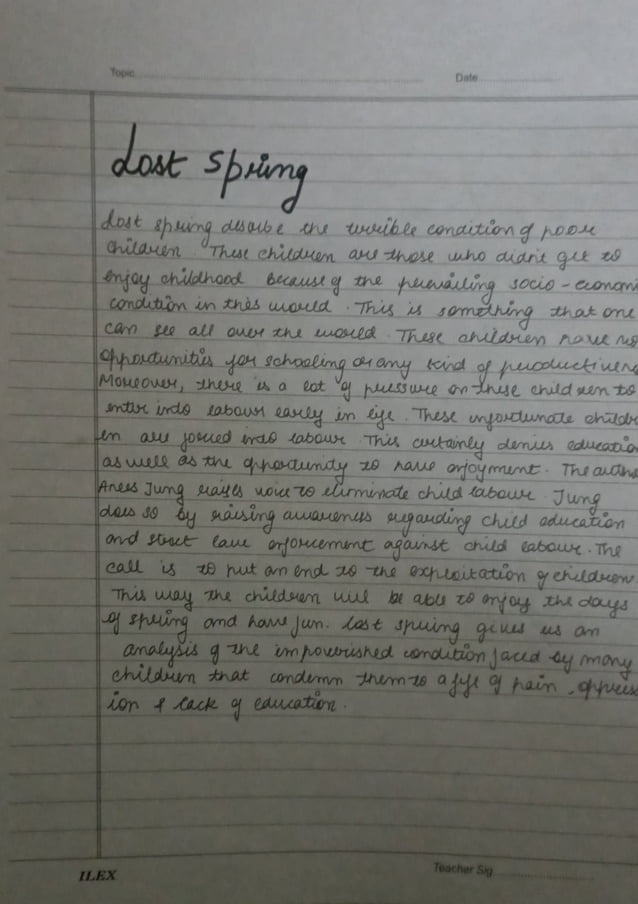 Topic
Date
Lost Spring
Lost spring describe the terrible condition of poor
children. These children are those who didn't get to
enjoy childhood because of the prevailing socio-economi
condition in this world. This is something that one
can see all over the world. These children have no
opportunities for schooling or any kind of productivene
Moreover, there is a lot of pressure on these children to
enter into labour early in life. These unfortunate childr
en are forced into labour. This certainly denies education
as well as the opportunity to have enjoyment. The autho
Anees Jung raises voice to eliminate child labour. Jung
does so by raising awareness regarding child education
and strict law enforcement against child labour. The
call is to put an end to the exploitation of children.
This way the children will be able to enjoy the days
of spring and have fun. Lost spring gives us an
analysis of the impoverished condition faced by many
children that condemn them to a life of pain, oppress
ion & lack of education.
ILEX
Teacher Sig